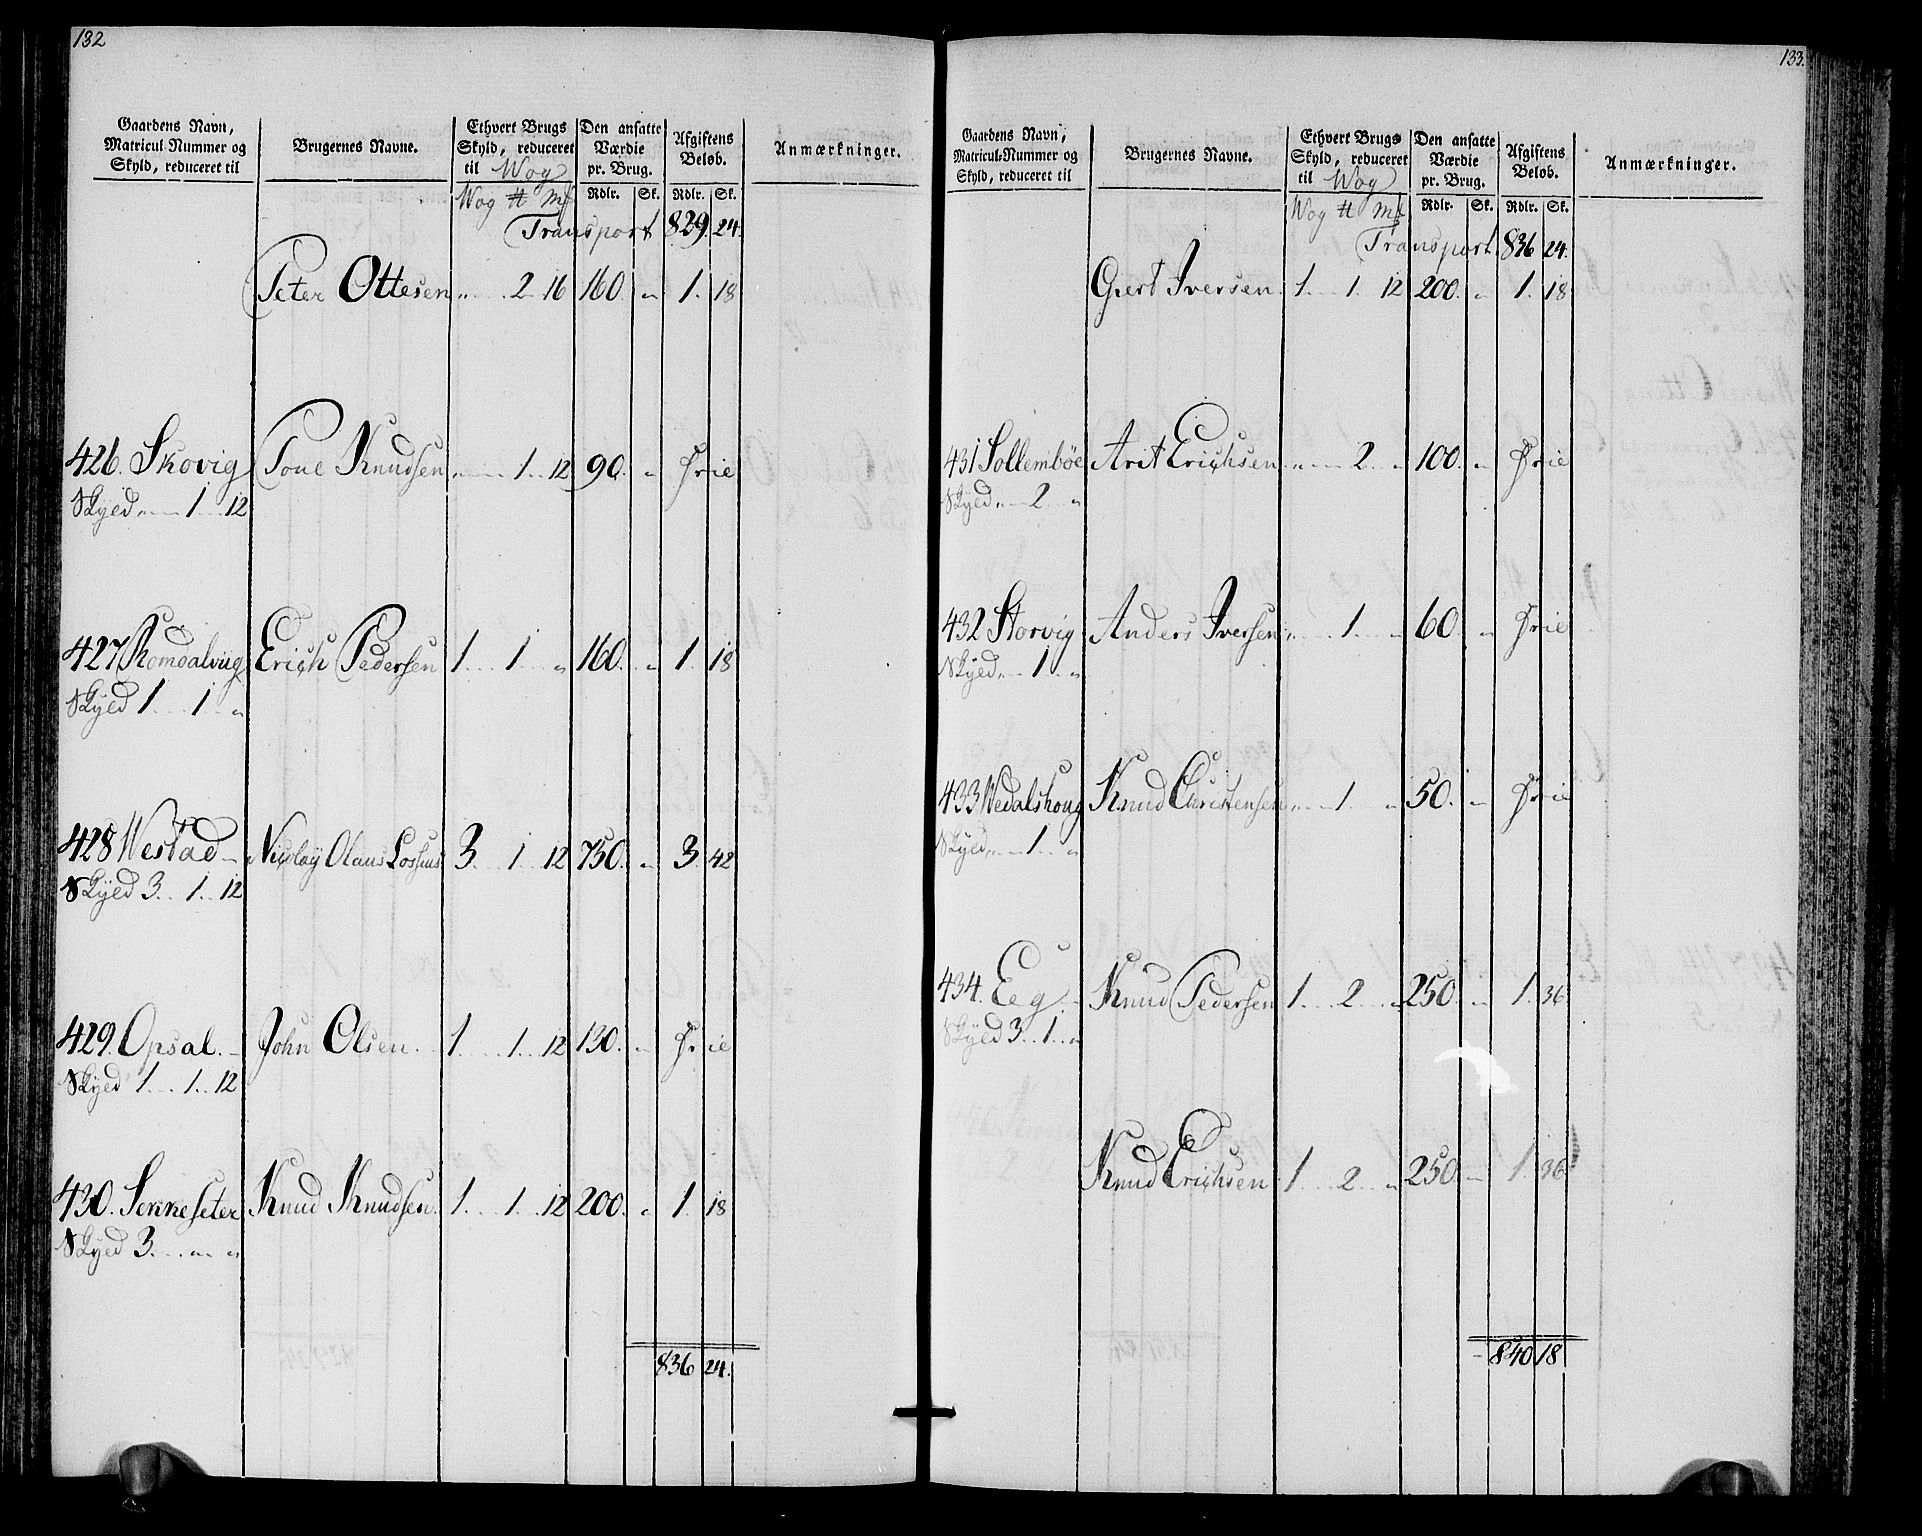 132
Gaardens Navn, Matricul-Nummer og Skyld, reduceret til
Brugernes Navne.
Ethvert Brugs Skyld, reduceret til Wog
Den ansatte Værdie pr. Brug.
Afgiftens Beløb.
Anmærkninger.
Wog ℔ Mk Rdlr. Sk. Rdlr. Sk.
Transport 829. 24.
Peter Ottesen „ 2 16 160. „ 1. 18
426. Skovig Tone Knudsen „ 1 12 90. „ Frie
Skyed „ 1 12
427 Romdalviig Erich Pedersen 1 1 „ 160. „ 1. 18
Skyed 1 1 „
428 Westad Nicolay Olaus Loshius 3. 1 12 750. „ 3. 42
Skyed 3. 1. 12
429. Opsal. John Olsen. 1. 1. 12 130. „ Frie
Skyed 1 1. 12
430. Senneseter Knud Knudsen. 1. 1. 12 200. „ 1. 18
Skyed 3. „ „
836 24.
133.
Gaardens Navn, Matricul-Nummer og Skyld, reduceret til
Brugernes Navne.
Ethvert Brugs Skyld, reduceret til Wog
Den ansatte Værdie pr. Brug.
Afgiftens Beløb.
Anmærkninger.
Wog ℔ Mk Rdlr. Sk. Rdlr. Sk.
Transport 836 24.
Giert Iversen 1. 1. 12 200. „ 1. 18
431 Sollembøe Arit Erichsen „ 2 „ 100. „ Frie
Skyed „ 2 „
432 Storvig Anders Iversen „ 1. „ 60. „ Frie
Skyed „ 1. „
433 Wedalshoug Knud Christensen „ 1. „ 50. „ Frie
Skyed „ 1. „
434. Eeg Knud Pedersen 1. 2 „ 250. „ 1. 36
Skyed 3. 1. „
Knud Erichsen 1 2 „ 250. „ 1. 36
840 18